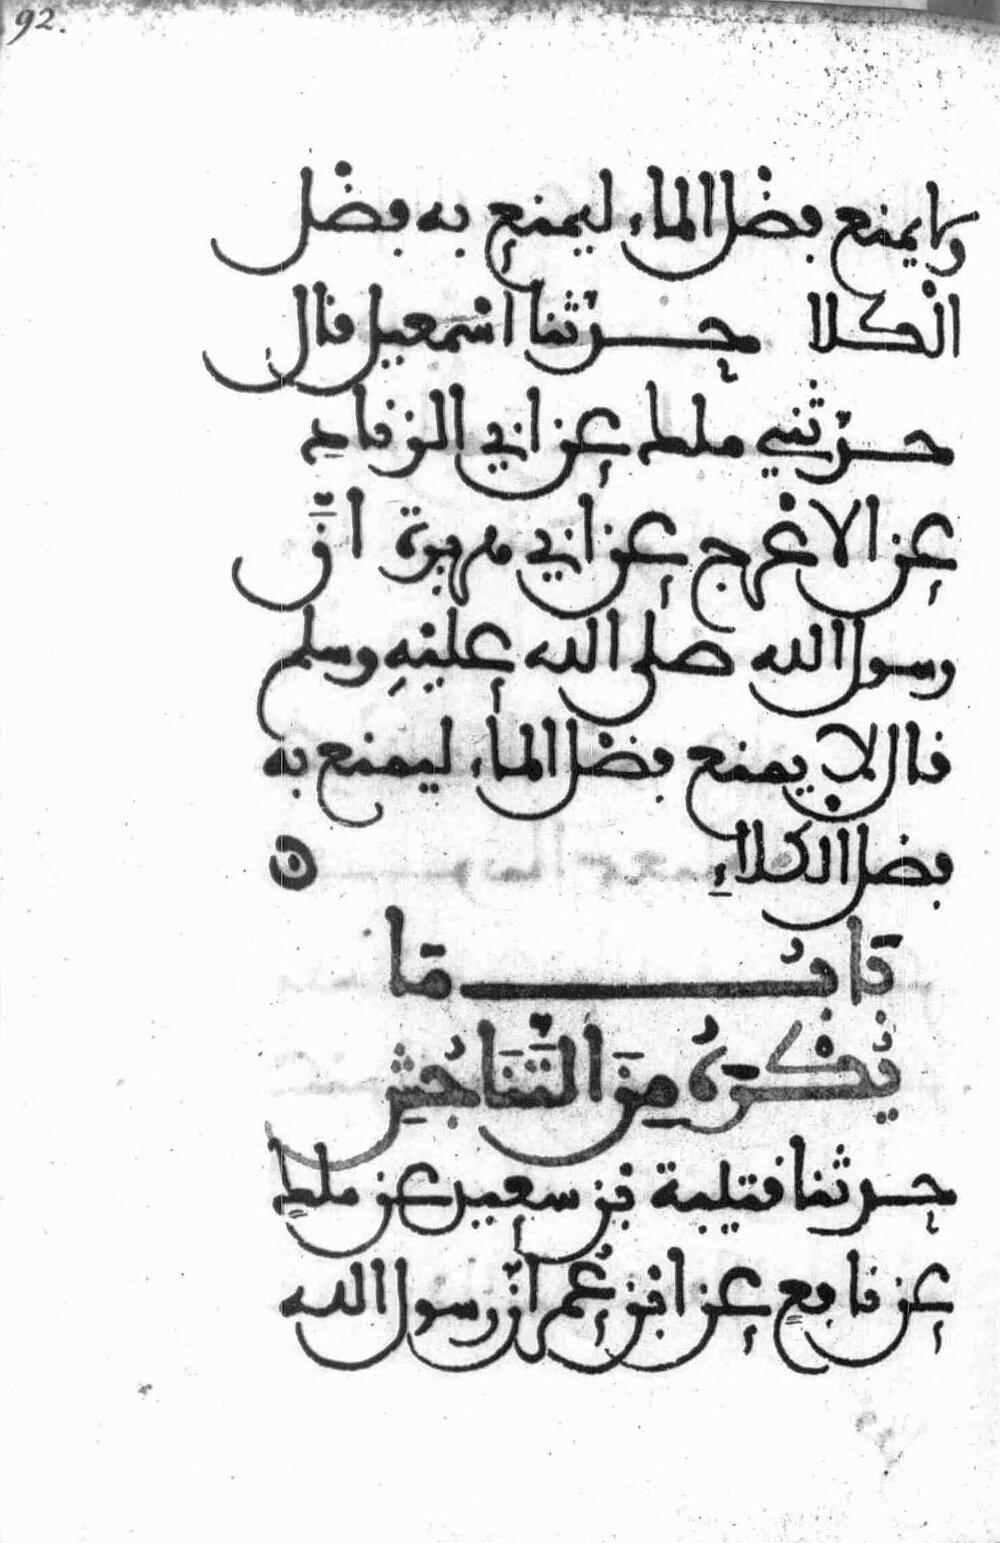 92.
ولا يمنع فضل الماء ليمنع به فضل
الكلا حدثنا اسمعيل قال
حدثني ملك عن ابي الزناد
عن الاعرج عن ابي هريرة ان
رسول الله صلى الله عليه وسلم
قال لا يمنع فضل الماء ليمنع به
فضل الكلاء
باب ما
يُكْرَهُ مِنَ التَّنَاجُشِ
حدثنا قتيبة بن سعيد عن ملك
عن نافع عن ابن عمر ان رسول الله